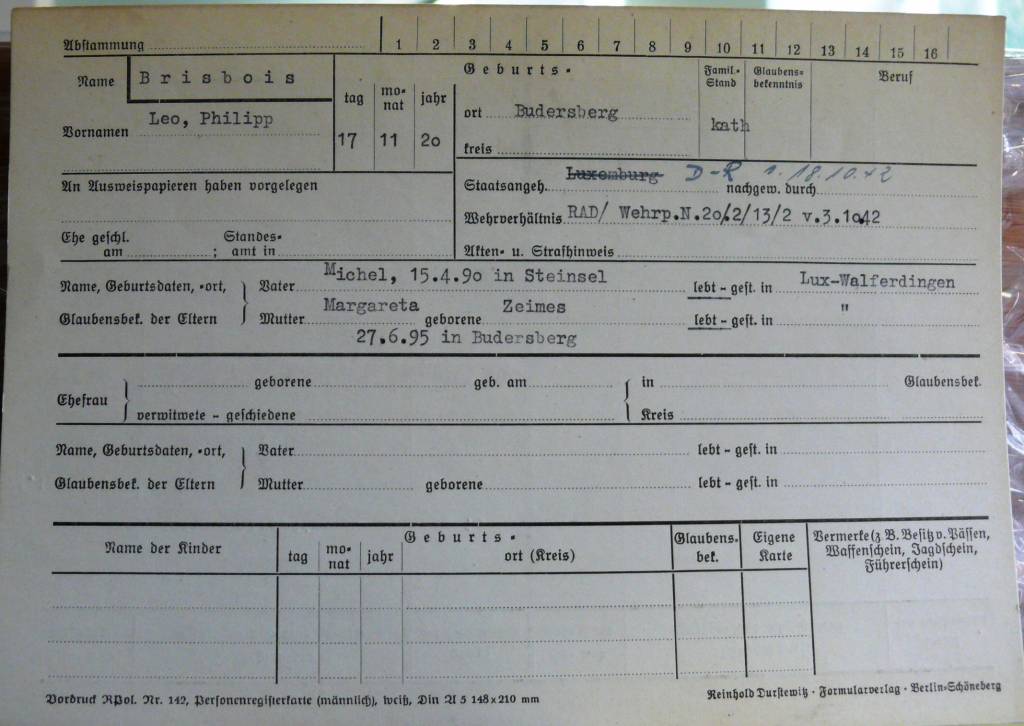 Abstammung 1 2 3 4 5 6 7 8 9 10 11 12 13 14 15 16
Name Brisbois
Vornamen Leo, Philipp
Geburts-
tag monat jahr
17 11 20
ort Budersberg
kreis
Famil.-Stand
Glaubensbekenntnis
kath
Beruf
An Ausweispapieren haben vorgelegen
Staatsangeh. Luxemburg D-R 1. 18.10.42 nachgew. durch
Wehrverhältnis RAD/ Wehrp.N.20/2/13/2 v.3.10.42
Ehe geschl. am ; Standesamt in
Akten- u. Strafhinweis
Name, Geburtsdaten, -ort, Vater Michel, 15.4.90 in Steinsel lebt - gest. in Lux-Walferdingen
Glaubensbek. der Eltern Mutter Margareta geborene Zeimes lebt - gest. in "
27.6.95 in Budersberg
Ehefrau geborene geb. am in Glaubensbek.
verwitwete - geschiedene Kreis
Name, Geburtsdaten, -ort, Vater lebt - gest. in
Glaubensbek. der Eltern Mutter geborene lebt - gest. in
Name der Kinder
Geburts-
tag monat jahr ort (Kreis)
Glaubensbek.
Eigene Karte
Vermerke (z B. Besitz v. Pässen,
Waffenschein, Jagdschein,
Führerschein)
Vordruck RPol. Nr. 142, Personenregisterkarte (männlich), weiß, Din A 5 148x210 mm
Reinhold Durstewitz · Formularverlag · Berlin-Schöneberg